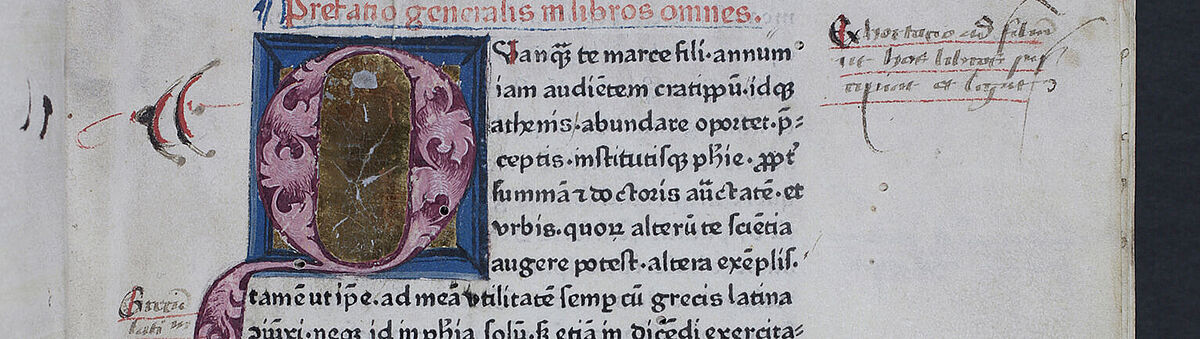 Prefatio generalis in libros omnes.
QVanq̃ te marce fili·annum
iam audiẽtem cratippũ·idq̃
athenis·abundare oportet·p̄-
ceptis·institutisq̃ phie·ꝓpt̃
summã ⁊ doctoris auc̃tatẽ·et
vrbis·quoꝝ alterũ te sciẽtia
augere potest·altera exẽplis·
tamẽ ut ip̃e·ad meã vtilitatẽ semp cũ grecis latina
iũxi·neqꝫ id in phia solũ·sꝫ etiã in dicẽdi exercita-
Exhortatio ad filium
ut hos libros
et legat